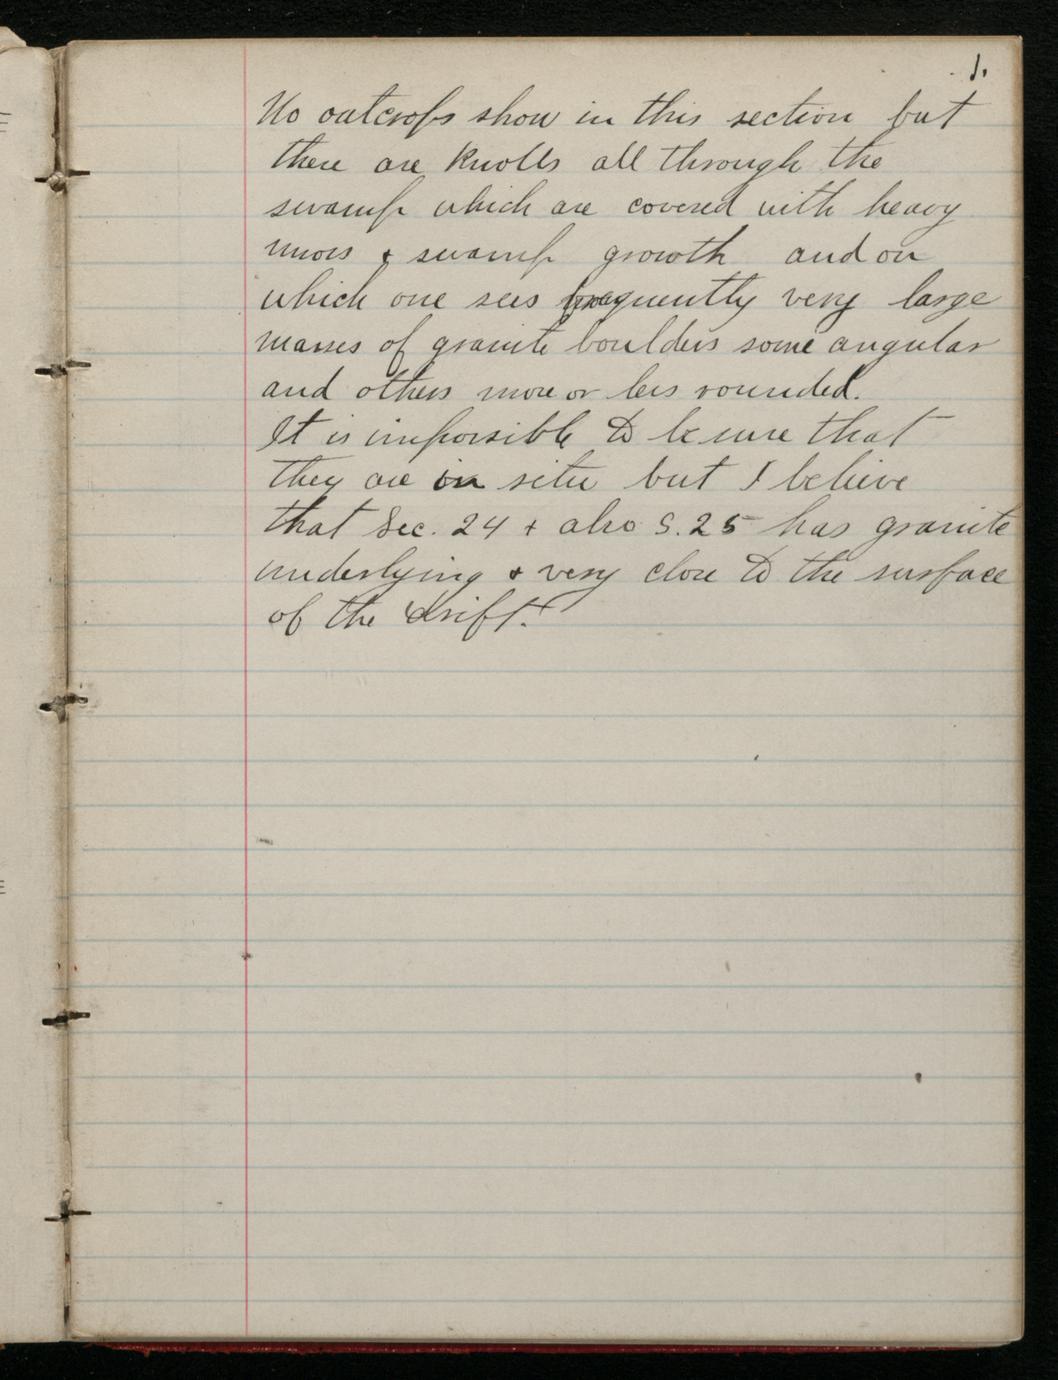 1.
No outcrops show in this section but
there are knolls all through the
swamp which are covered with heavy
moss & swamp growth and on
which one sees frequently very large
masses of granite boulders some angular
and others more or less rounded.
It is impossible to be sure that
they are in situ but I believe
that Sec. 24 + also S. 25 has granite
underlying & very close to the surface
of the drift.